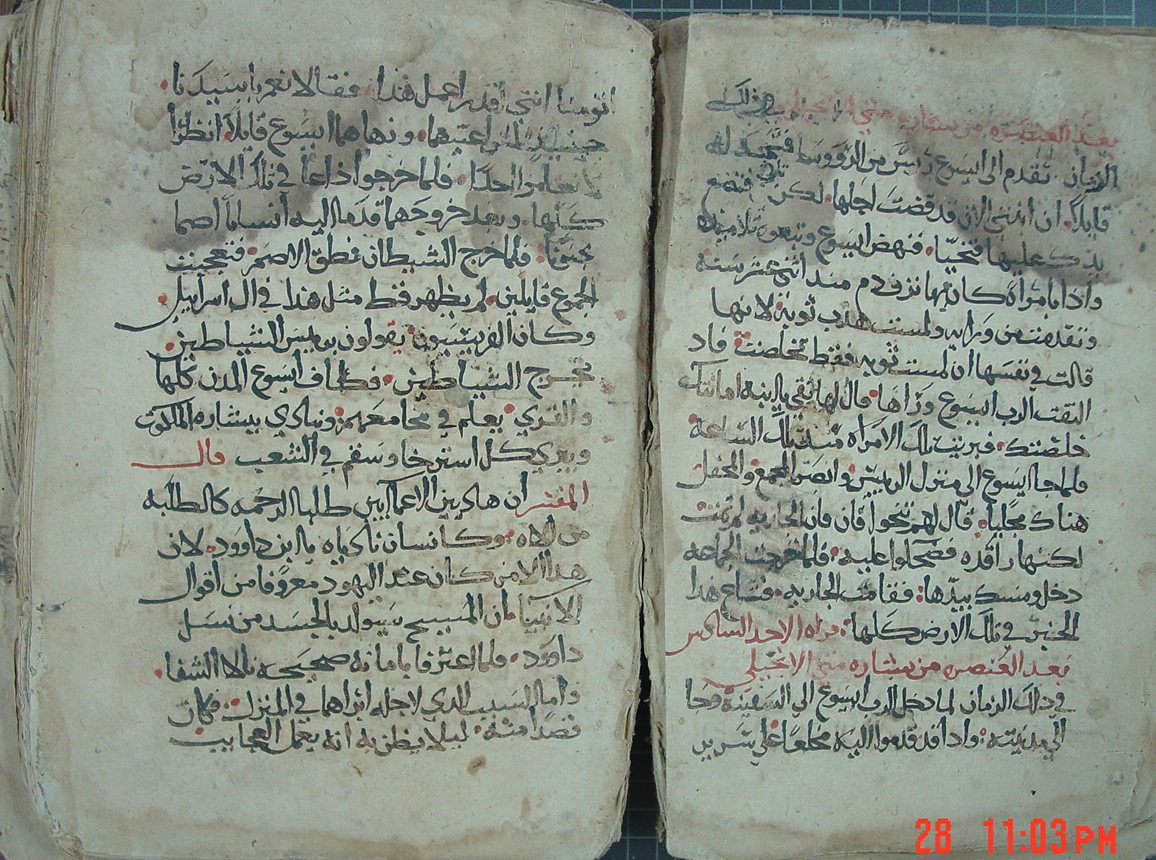 بعد العنصره من بشاره متي الانجيلي في ذلك
الزمان تقدم الى ايسوع رييس من الرووسا فسجد له
قايلاً ان ابنتي الان قد قضت اجلها لكن تعال فضع
يدك عليها فتحيا فنهض ايسوع وتبعه تلاميذه
واذا بامراة كان بها نزف دم منذ اثني عشر سنة
وتقدمت من ورايه ولمست هدب ثوبه لانها
قالت في نفسها ان لمست ثوبه فقط تخلصت فاد
التفت الرب ايسوع وراها قال لها ثقي يا ابنة امانتك
خلصتك فبريت تلك الامراه منذ تلك الساعة
فلما جا ايسوع الى منزل الرييس وابصر المجمع والمحفل
هناك قال لهم تنحوا فان الجاريه لم تمت
لكنها راقده فضحكوا عليه فلما اخرجت الجماعة
دخل ومسك بيدها فقامت الجاريه فشاع هدا
الخبر في تلك الارض كلها قراه الاحد السادس
بعد العنصره من بشاره متي الانجيلي
في دلك الزمان لما دخل الرب ايسوع الي السفينة وجا
الي مدينته واذا قد قدموا اليه مخلعا علي سرير
اتومنا انني اقدر اعمل هدا فقالا نعم يا سيدنا
حينيد لمس اعينهما ونهاهما ايسوع قايلاً انظرا
لا يعلموا احدا فلما خرجوا اذاعا في تلك الارض
كلها وبعد خروجهما قدما اليه انسانا اصما
مجنونا فلما خرج الشيطان نطق الاصم فتعجبت
الجموع قايلين لم يظهر قط مثل هدا في ال اسراييل
وكان الفريسيون يقولون برييس الشياطين
يخرج الشياطين فطاف ايسوع المدن كلها
والقري يعلم في مجامعهم وينادي ببشاره الملكوت
ويبري كل استرخا وسقم في الشعب قال
المفسر ان هادين الاعمايين طلبا الرحمه كالطلبه
من الاه وكانسان نادياه يا ابن داوود لان
هدا الامر كان عند اليهود معروفا من اقوال
الانبيا ان المسيح سيولد بالجسد من نسل
داوود فلما اعترفا بامانه صحيحه نالا الشفا
واما السبب الدي لاجله ابراهما في المنزل فكان
قصدا منه ليلا يظن به انه يعمل العجايب
28 11:03 PM